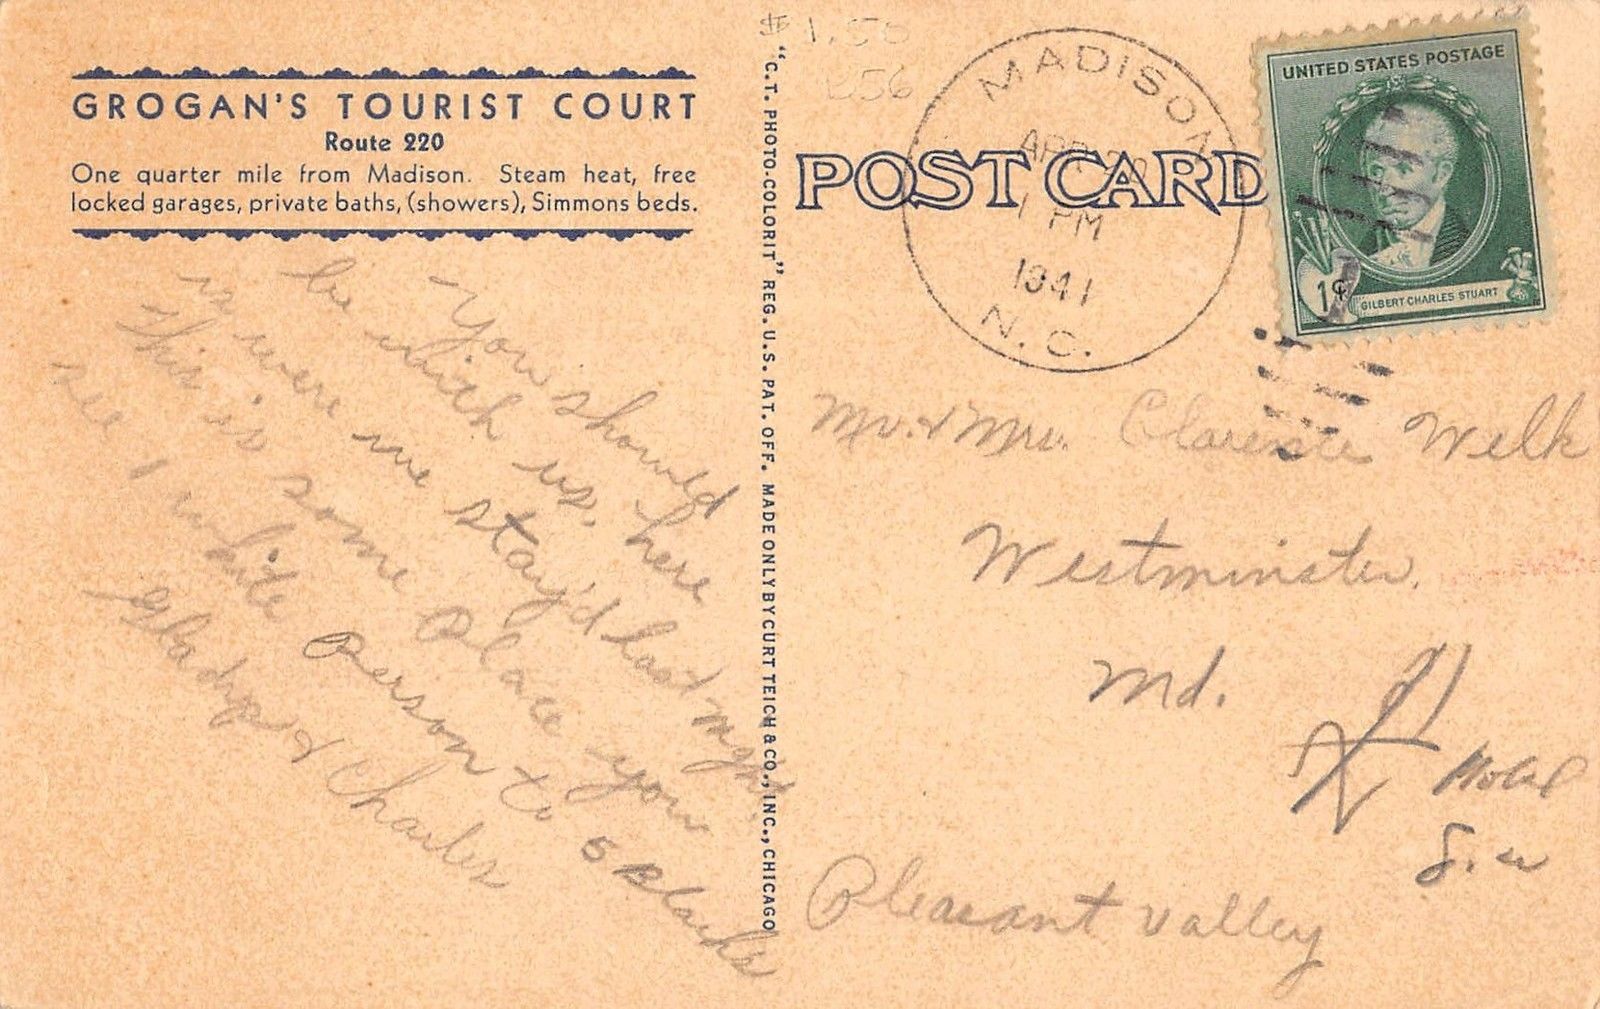 GROGAN'S TOURIST COURT
Route 220
One quarter mile from Madison. Steam heat, free
locked garages, private baths, (showers), Simmons beds.
You should
be with us, here
is were we stay'd last night.
This is some place you
see 1 white Person to 5 blacks
Gladys & Charles
"C.T. PHOTO-COLORIT" REG. U.S. PAT. OFF. MADE ONLY BY CURT TEICH & CO., INC., CHICAGO
$1.50
556
MADISON
APR
1 PM
1941
N.C.
POST CARD
UNITED STATES POSTAGE
1¢
GILBERT CHARLES STUART
Mr. & Mrs. Clarence Welk
Westminster.
Md.
Pleasant Valley